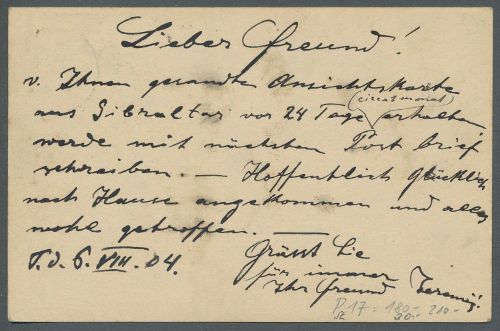 Lieber Freund!
v. Ihnen gesandte Ansichtskarte
aus Gibraltar vor 24 Tage (circat monat) erhalten
werde mit nächsten Post brief
schreiben. — Hoffentlich glücklich
nach Hause angekommen und alles
wohl getroffen.
T. d. 6. VIII. 04.
Grüsst Sie
für immer
Ihr Freund
P17 = 180.- 210.-